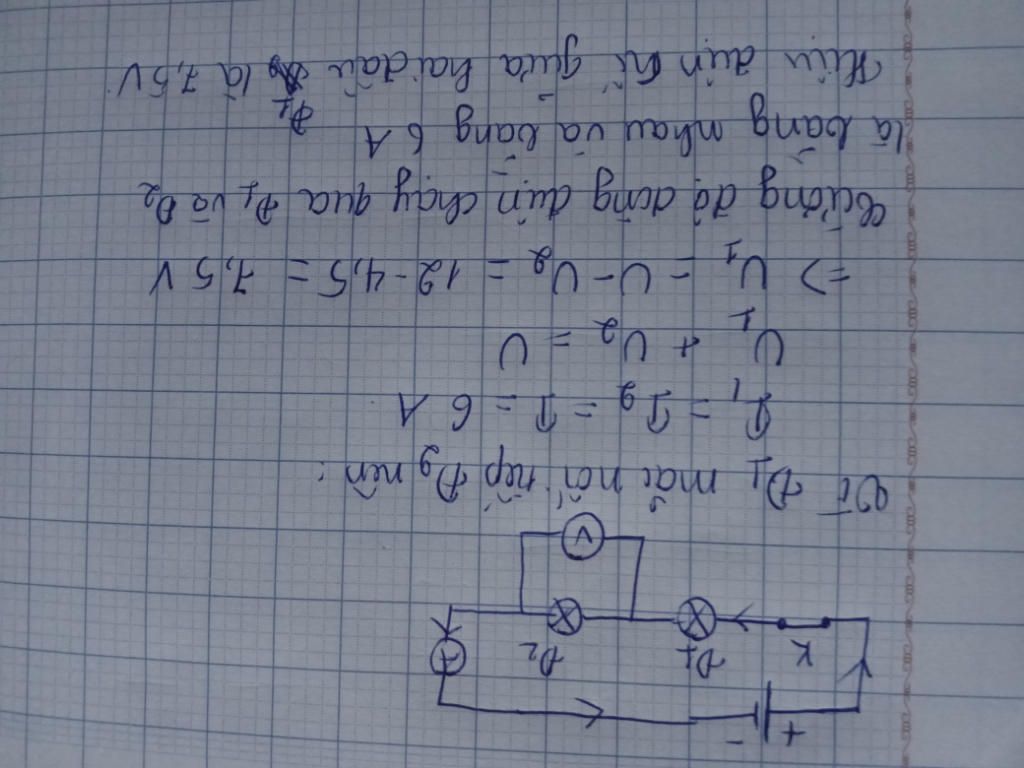 + -
K Đ1 Đ2 A
V
Vì Đ1 mắc nối tiếp Đ2 nên:
I1 = I2 = I = 6 A
U1 + U2 = U
=> U1 = U - U2 = 12 - 4,5 = 7,5 V
Cường độ dòng điện chạy qua Đ1 và Đ2
là bằng nhau và bằng 6 A
Hiệu điện thế giữa hai đầu Đ1 là 7,5 V